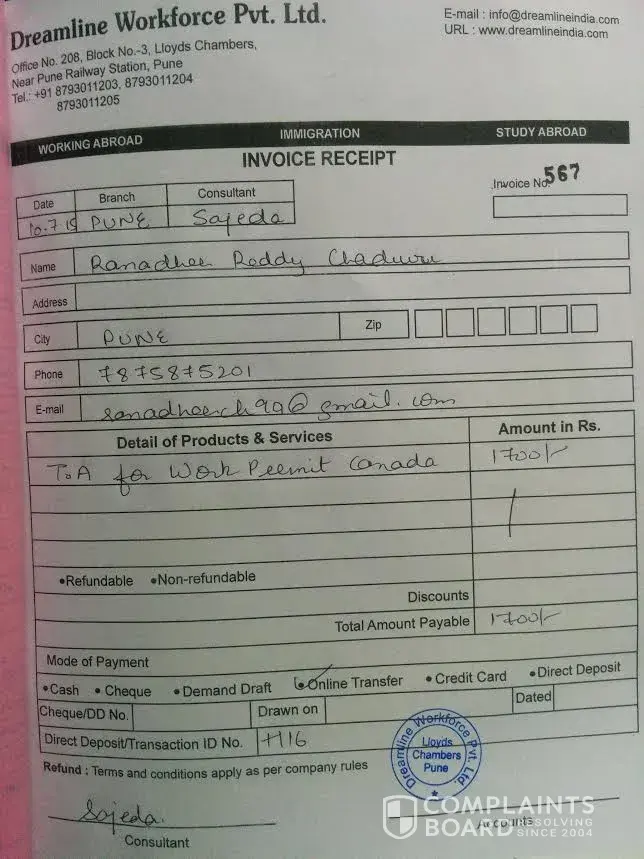 Dreamline Workforce Pvt. Ltd.
E-mail : info@dreamlineindia.com
URL : www.dreamlineindia.com
Office No. 208, Block No.-3, Lloyds Chambers,
Near Pune Railway Station, Pune
Tel.: +91 8793011203, 8793011204
8793011205
WORKING ABROAD IMMIGRATION STUDY ABROAD
INVOICE RECEIPT
Invoice No. 567
Date Branch Consultant
10.7.15 PUNE Sajeda
Name Ranadheer Reddy
Address
City PUNE Zip
Phone 7875875201
E-mail ranadheerch99@gmail.com
Detail of Products & Services Amount in Rs.
T.A for Work Permit Canada 1700/-
•Refundable •Non-refundable
Discounts
Total Amount Payable 1700/-
Mode of Payment
•Cash •Cheque •Demand Draft •Online Transfer •Credit Card •Direct Deposit
Cheque/DD No. Drawn on Dated
Direct Deposit/Transaction ID No.
Refund : Terms and conditions apply as per company rules
Dreamline Workforce Pvt. Ltd.
Lloyds
Chambers
Pune
Sajeda
Consultant
Accounts
COMPLAINTS
BOARD RESOLVING
SINCE 2004